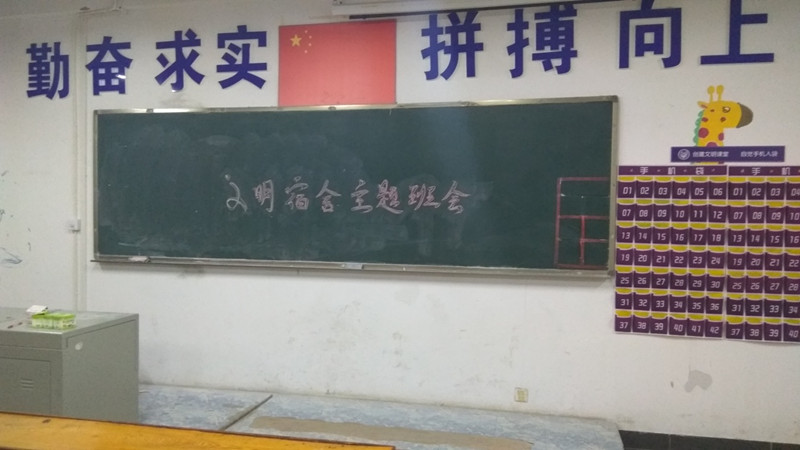 勤奋 求实 拼搏 向上
文明宿舍主题班会
创建文明课堂 自觉手机入袋
手 机 袋 手 机
01 02 03 04 05 06 01 02 03 04
07 08 09 10 11 12 07 08 09 10
13 14 15 16 17 18 13 14 15 16
19 20 21 22 23 24 19 20 21 22
25 26 27 28 29 30 25 26 27 28
31 32 33 34 35 36 31 32 33 34
37 38 39 40 41 42 37 38 39 40